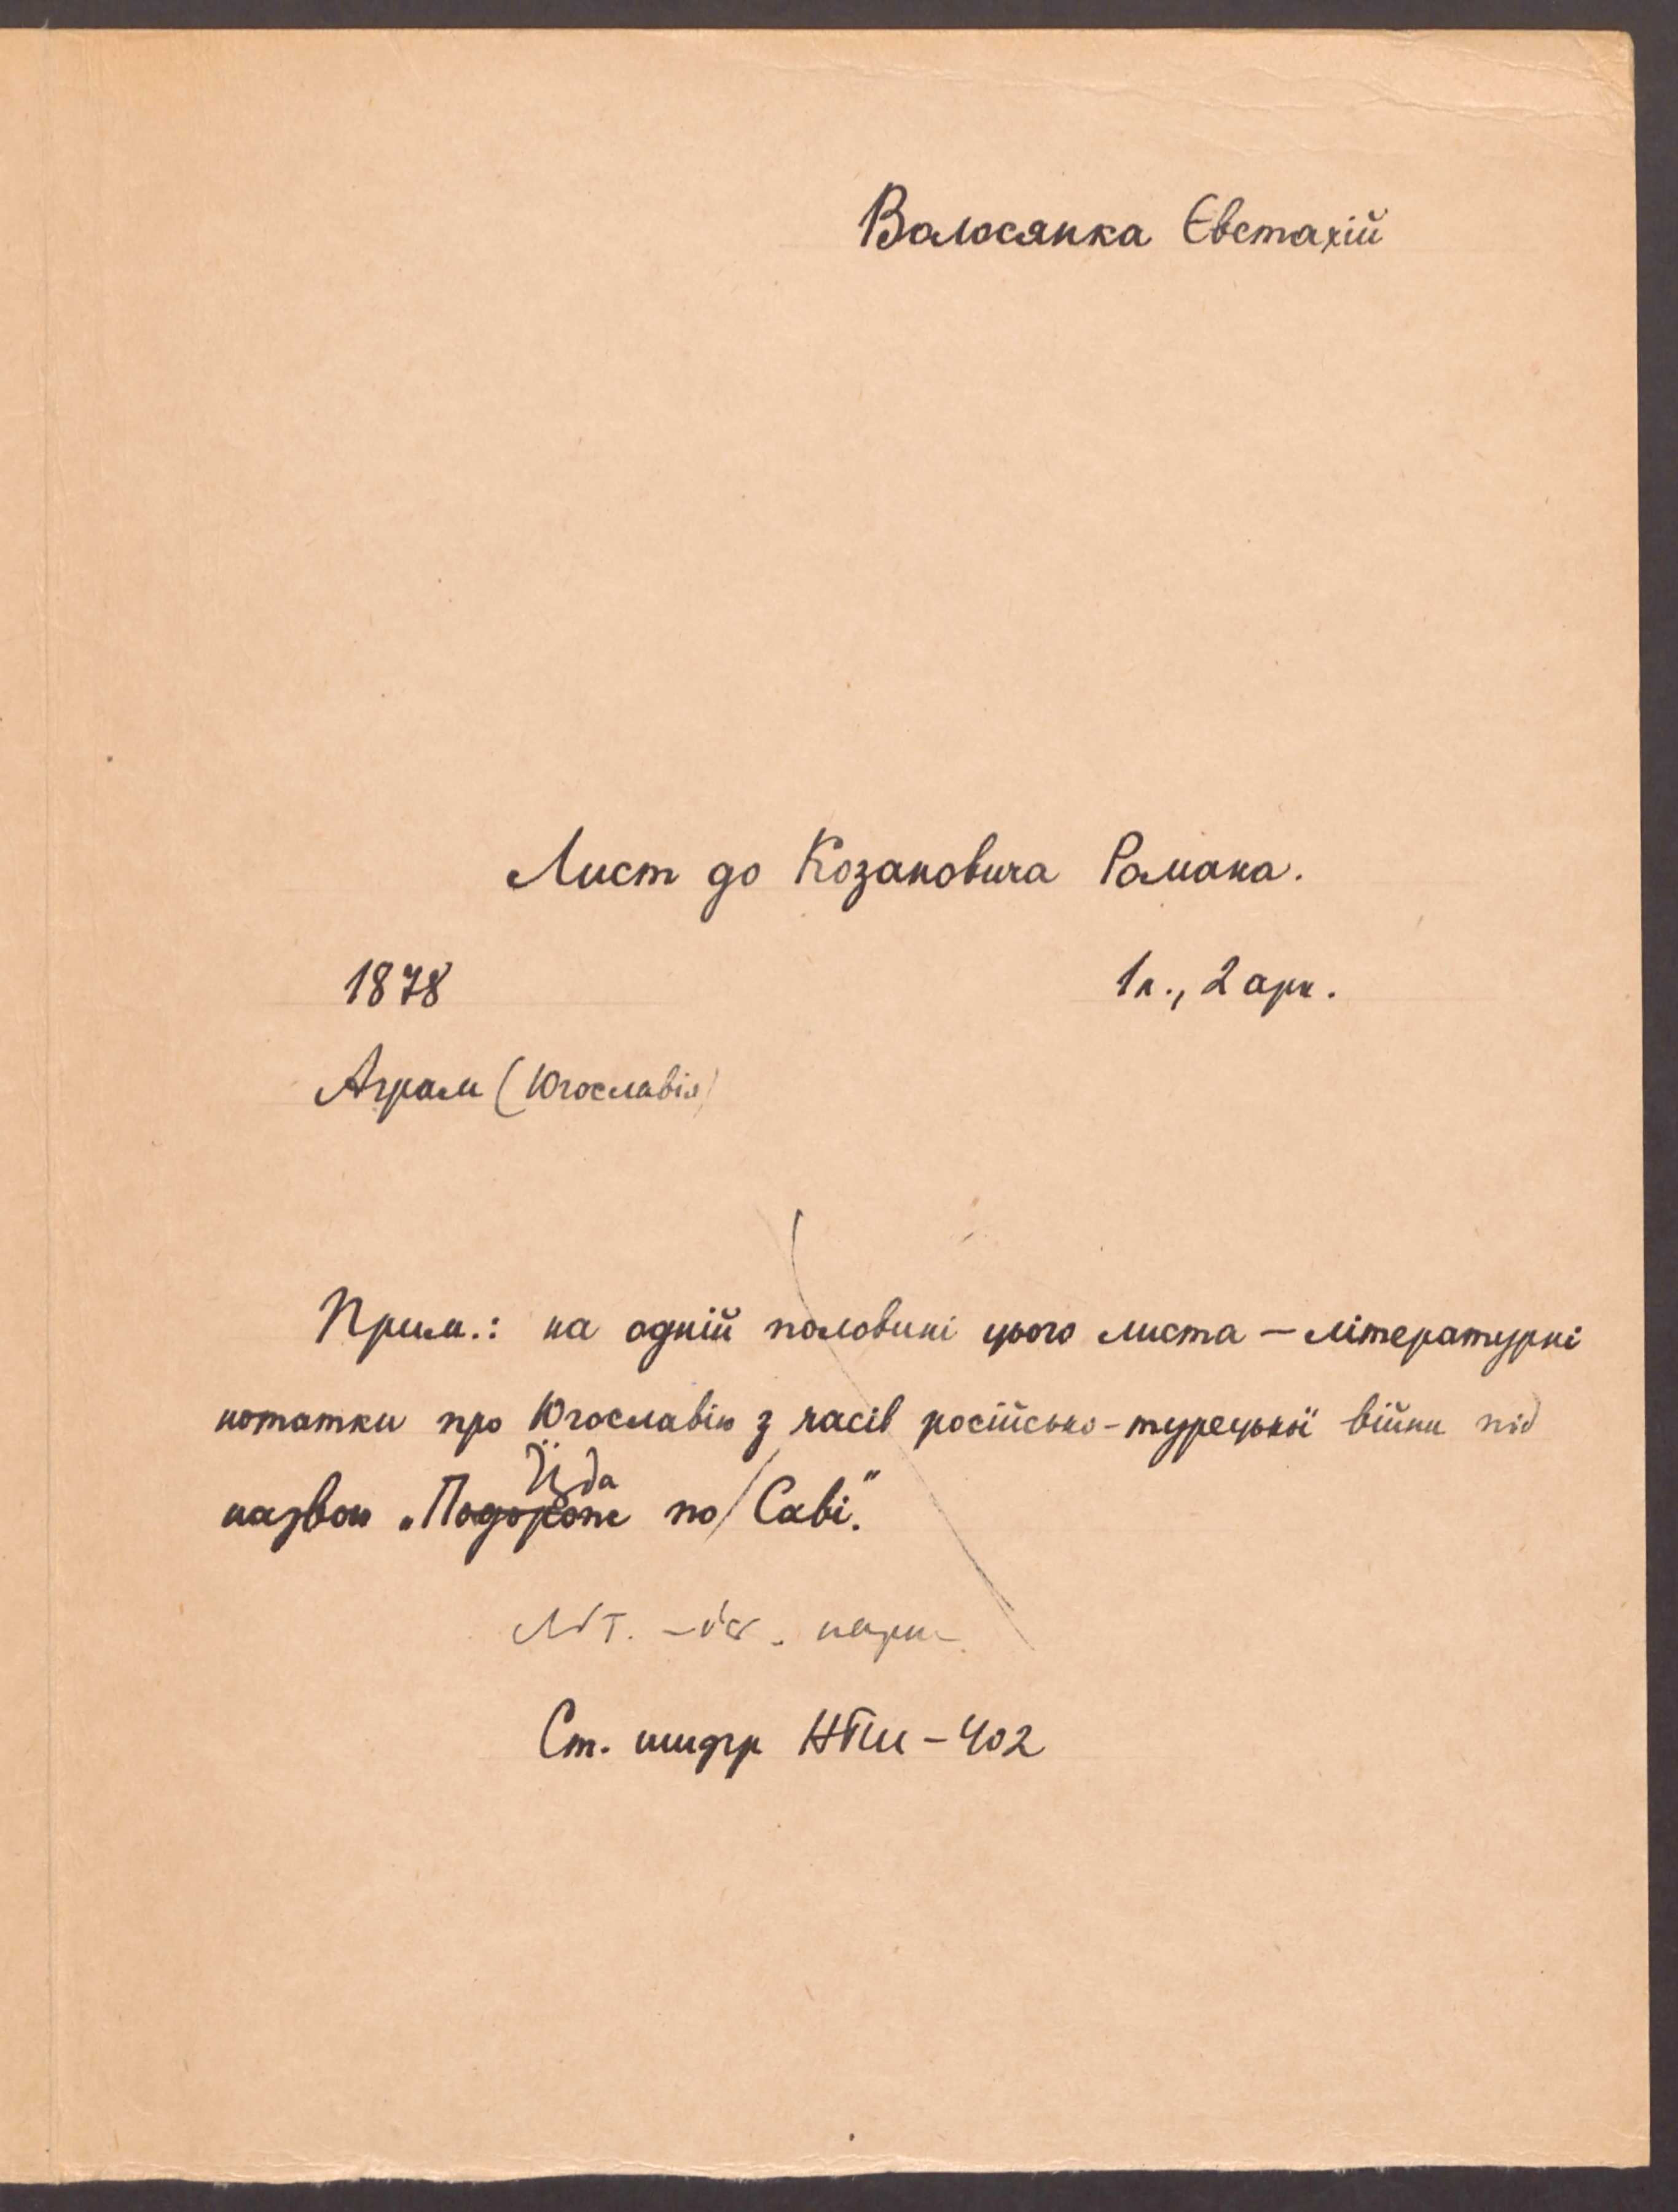 Волосянка Євстахій
Лист до Козановича Романа.
1878 1 л., 2 арк.
Аграм (Югославія)
Прим.: на одній половині цього листа – літературні
нотатки про Югославію з часів російсько-турецької війни під
Їзда
назвою „Подорож по Саві."
Літ.
Ст. шифр НТШ – 402